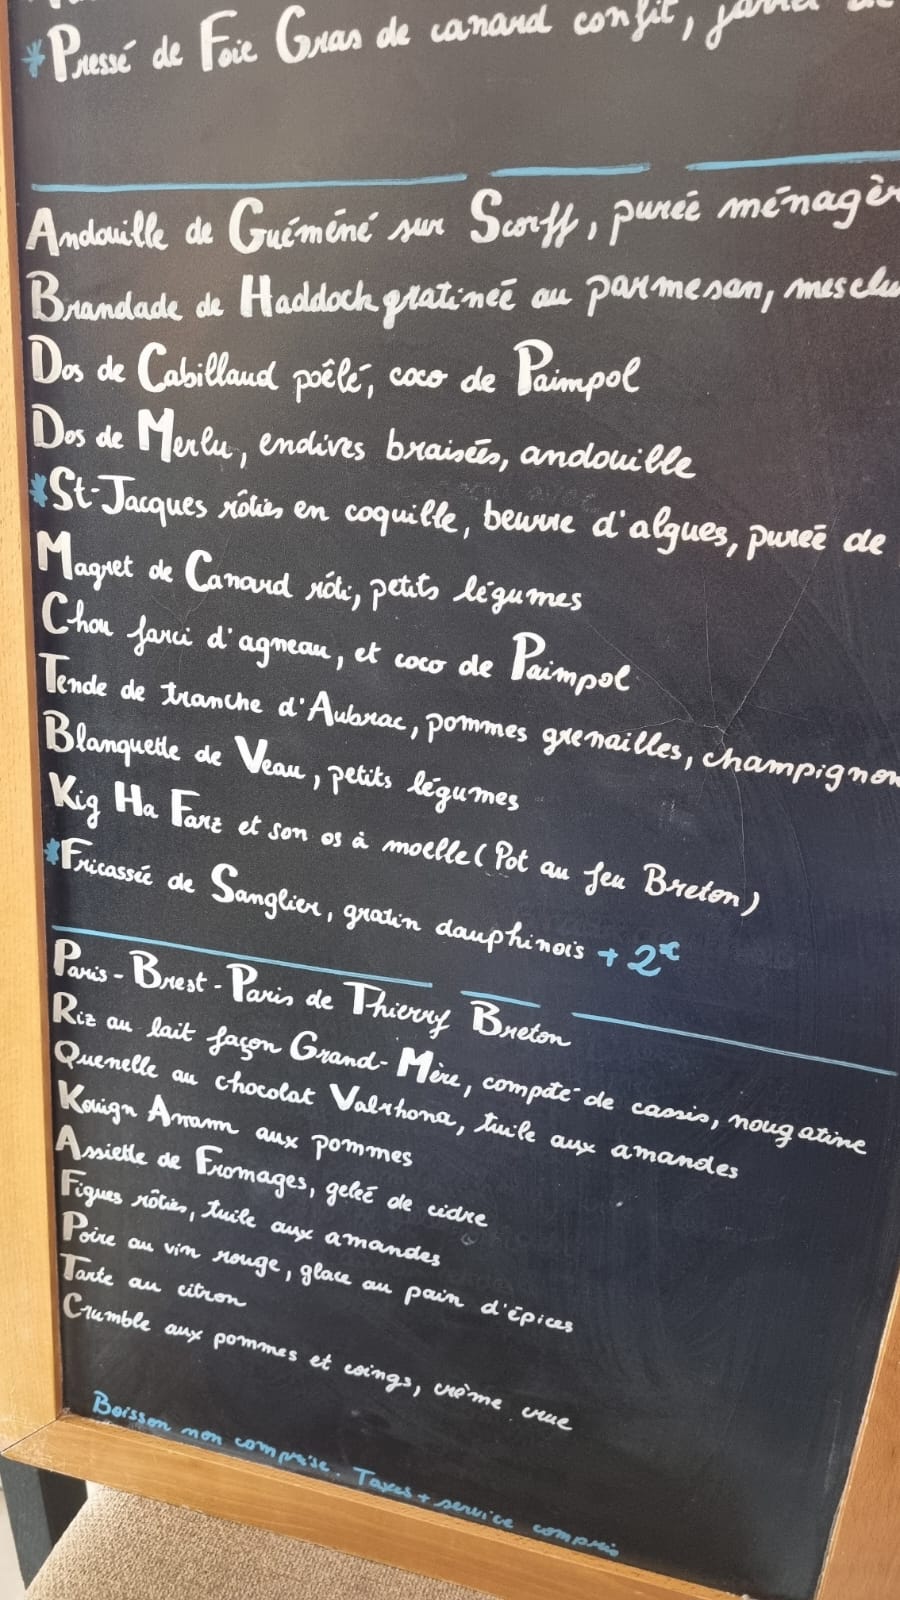 *Pressé de Foie Gras de canard confit,
Andouille de Guéméné sur Scorff, purée ménagèr
Brandade de Haddock gratinée au parmesan, mesclu
Dos de Cabillaud poêlé, coco de Paimpol
Dos de Merlu, endives braisées, andouille
*St-Jacques rôties en coquille, beurre d'algues, purée de
Magret de Canard rôti, petits légumes
Chou farci d'agneau, et coco de Paimpol
Tende de tranche d'Aubrac, pommes grenailles, champignon
Blanquette de Veau, petits légumes
Kig Ha Farz et son os à moelle (Pot au feu Breton)
*Fricassée de Sanglier, gratin dauphinois + 2€
Paris-Brest-Paris de Thierry Breton
Riz au lait façon Grand-Mère, compote de cassis, nougatine
Quenelle au chocolat Valrhona, tuile aux amandes
Kouign Amann aux pommes
Assiette de Fromages, gelée de cidre
Figues rôties, tuile aux amandes
Poire au vin rouge, glace au pain d'épices
Tarte au citron
Crumble aux pommes et coings, crème crue
Boisson non comprise. Taxes + service compris